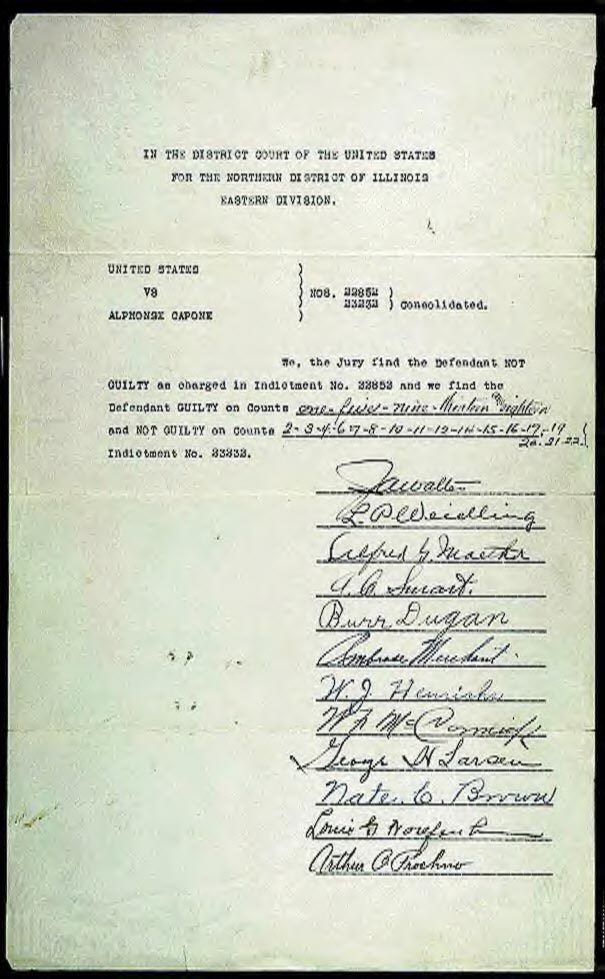 IN THE DISTRICT COURT OF THE UNITED STATES
FOR THE NORTHERN DISTRICT OF ILLINOIS
EASTERN DIVISION.
UNITED STATES
VS
ALPHONSE CAPONE
NOS. 22852
23232
) Consolidated.
We, the Jury find the Defendant NOT
GUILTY as charged in Indictment No. 22852 and we find the
Defendant GUILTY on Counts one-five-nine-thirteen and eighteen
and NOT GUILTY on Counts 2-3-4-6-7-8-10-11-12-14-15-16-17-19
20.21-22.
Indictment No. 23232.
L. P. Weidling
Burr Dugan
Ambrose Merchant
W. J. Henrichs
McCormick
George H Larsen
Nate C. Brown
Louis G
Arthur O Prochno